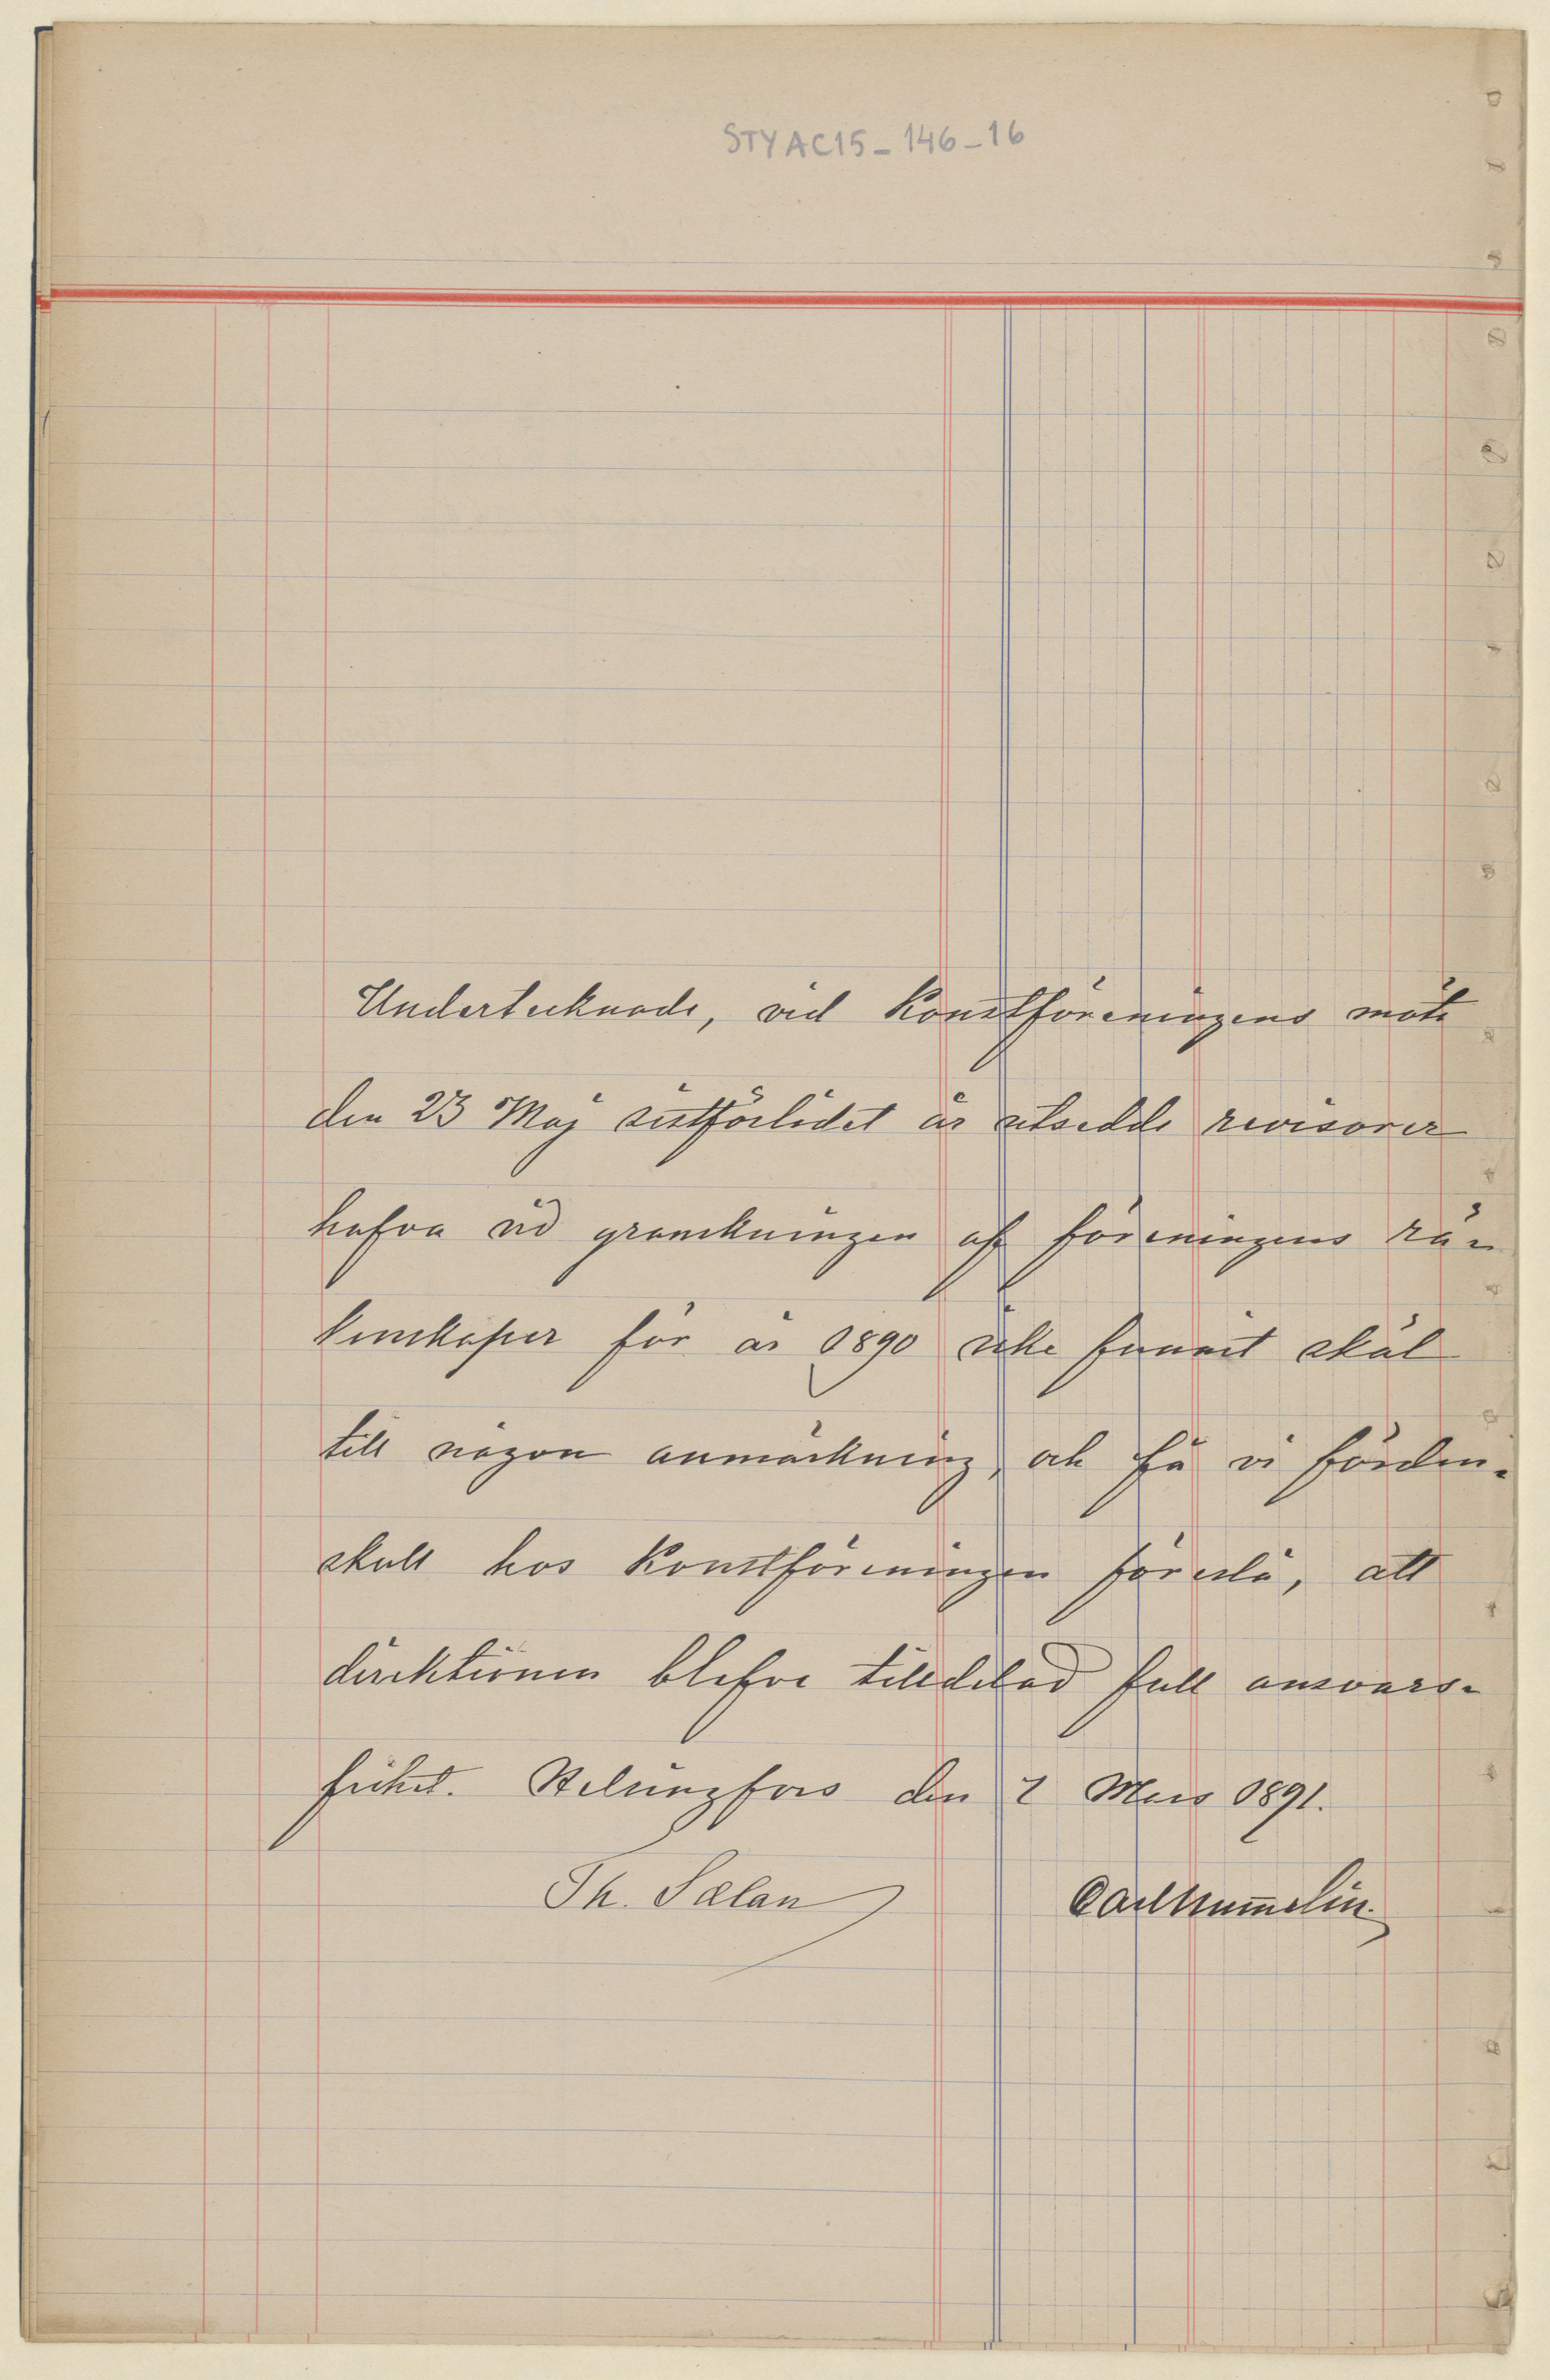 STYAC15-146-16
Undertecknade, vid Konstföreningens möte
den 23 Maj sistförlidet år utsedde revisorer
hafva vid granskningen af föreningens rä-
kenskaper för år 1890 icke funnit skäl
till någon anmärkning, och få vi förden-
skull hos Konstföreningen föreslå, att
direktionen blefve tilldelad full ansvars-
frihet. Helsingfors den 7 Mars 1891.
Th. Sælan Carl Hummelin.